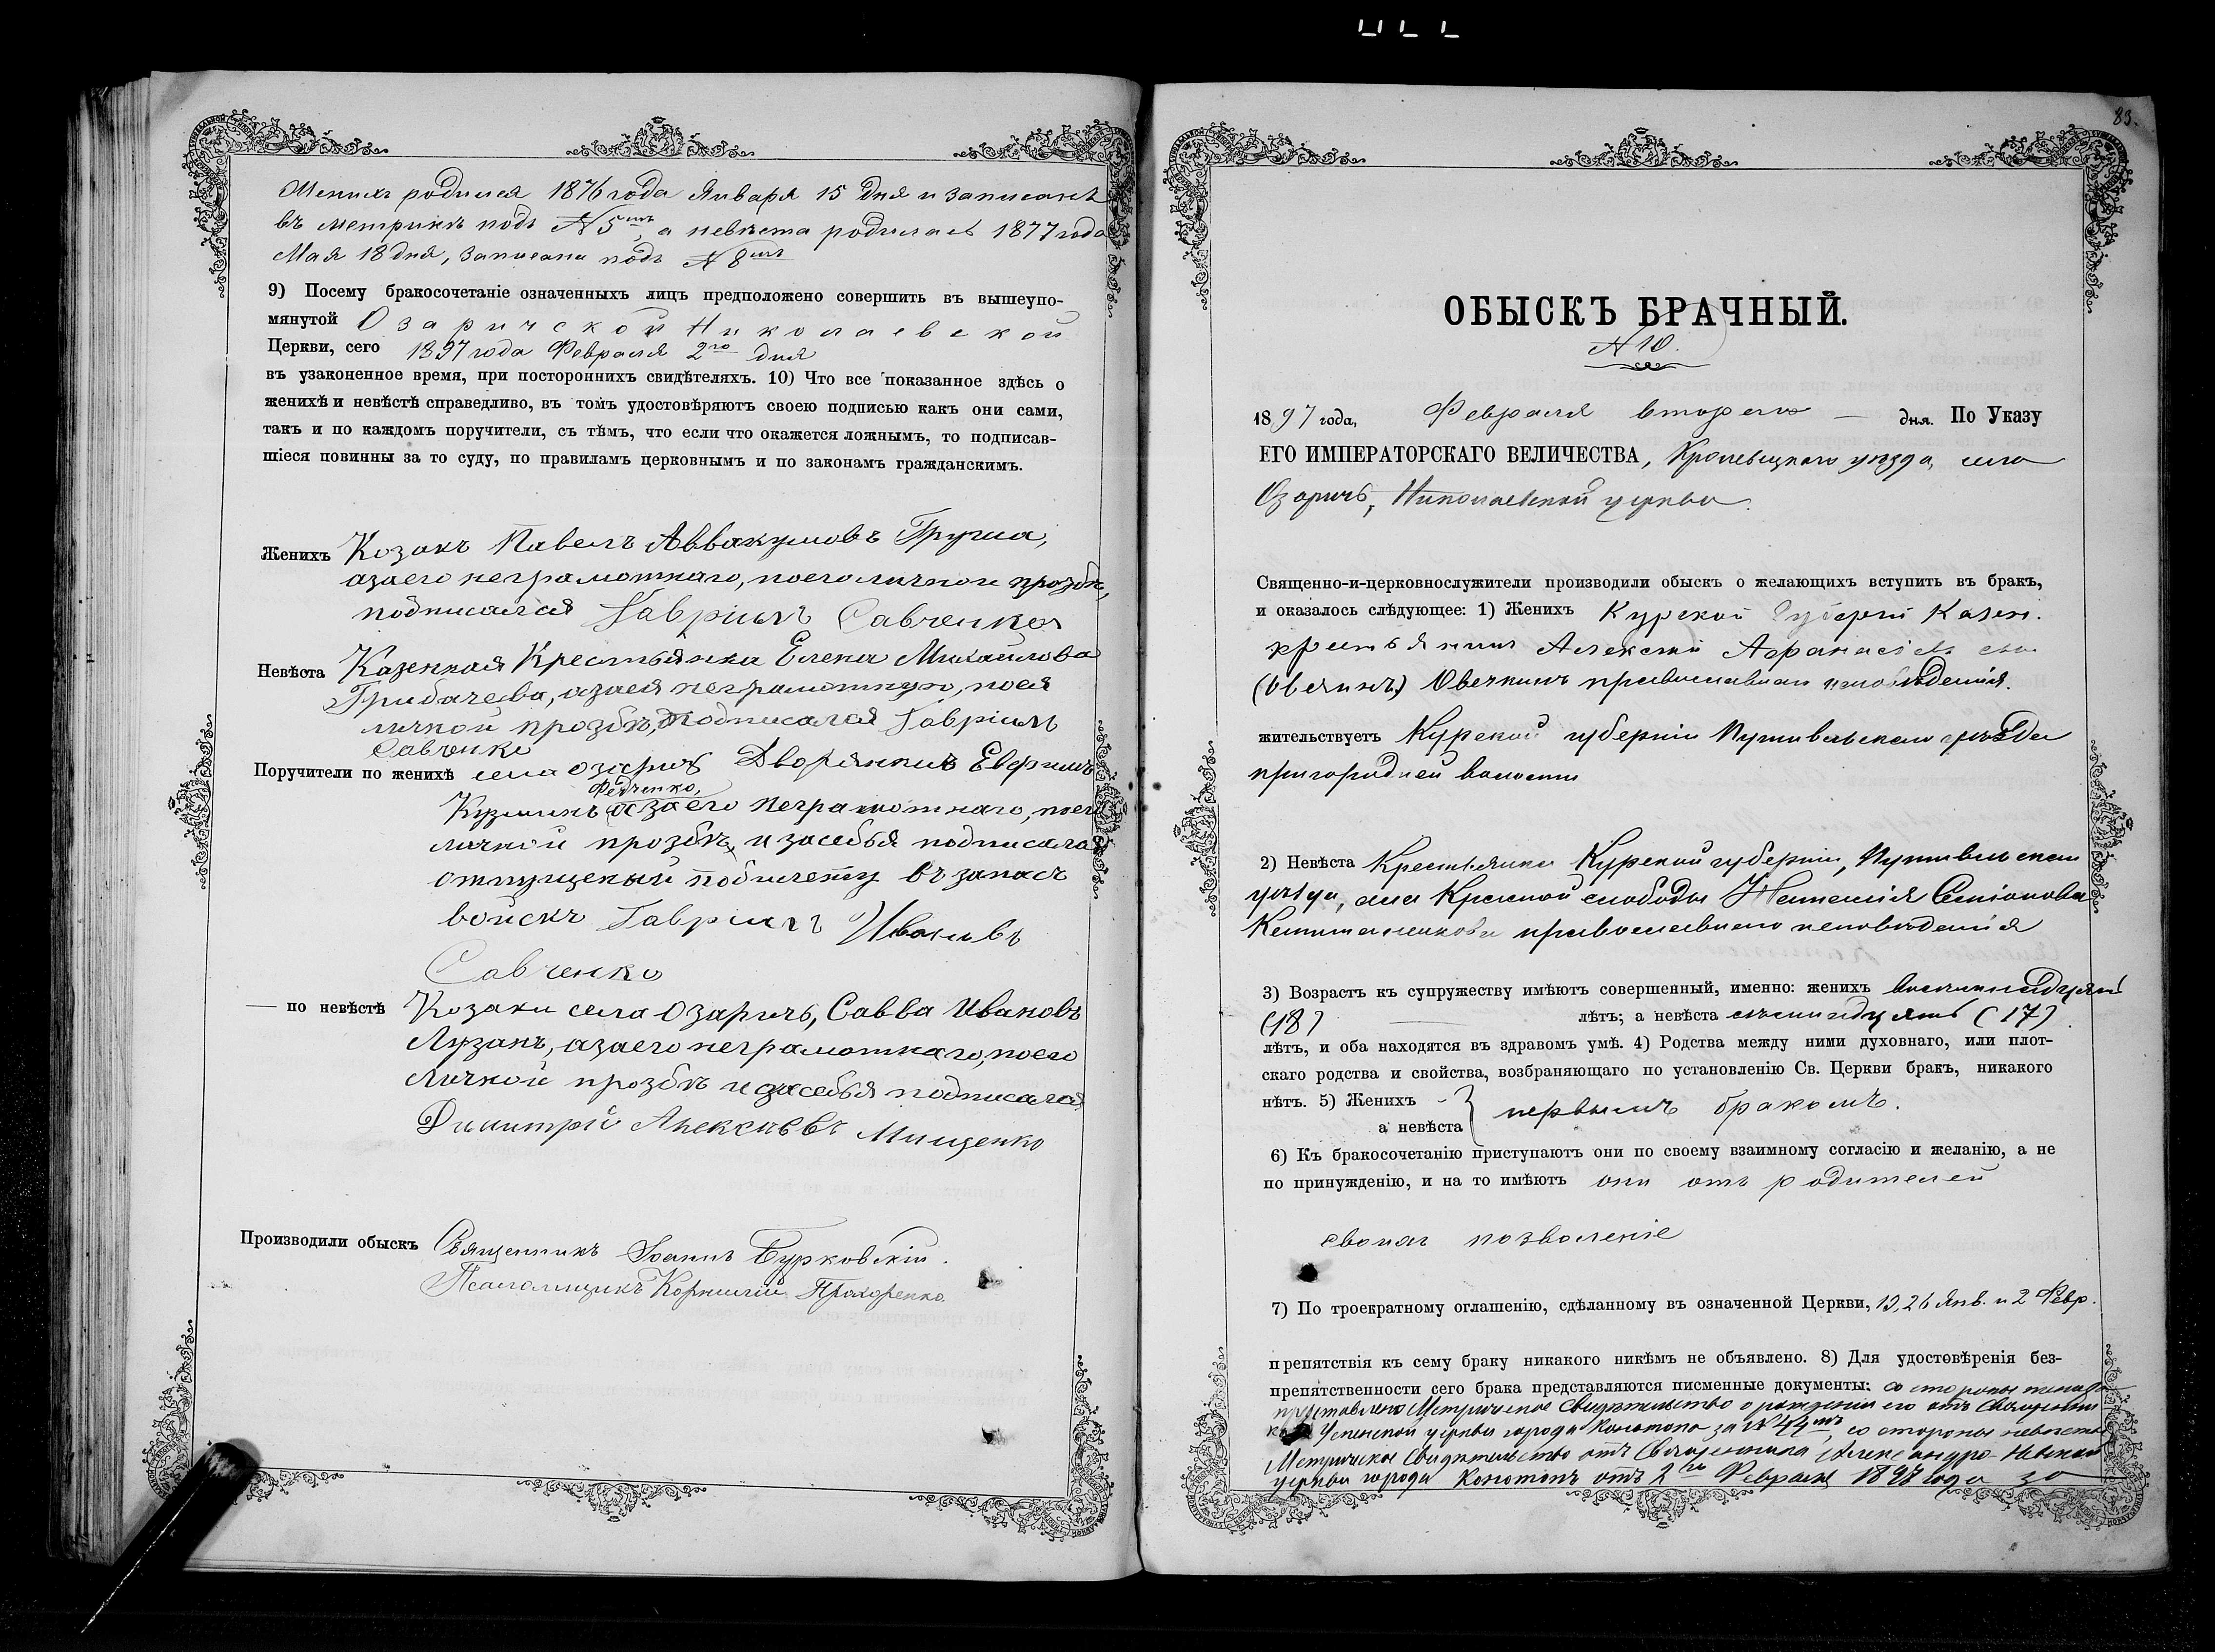 Женихъ родился 1876 года Января 15 дня и записанъ
въ метрикѣ подъ №5мъ, а невѣста родилась 1877 года
Мая 18 дня, записана подъ №8мъ
9) Посему бракосочетаніе означенныхъ лицъ предположено совершить въ вышеупо-
мянутой Озаричской Николаевской
Церкви, сего 1897 года Февраля 2го дня
въ узаконенное время, при постороннихъ свидѣтеляхъ. 10) Что все показанное здѣсь о
женихѣ и невѣстѣ справедливо, въ томъ удостовѣряютъ своею подписью какъ они сами,
такъ и по каждомъ поручители, съ тѣмъ, что если что окажется ложнымъ, то подписав-
шіеся повинны за то суду, по правиламъ церковнымъ и по законамъ гражданскимъ.
Женихъ Козакъ Павелъ Аввакумовъ
азаего неграмотнаго, поеголичной прозбѣ,
подписался Гавріилъ Савченко
Невѣста Казенная Крестьянка Елена Михайлова
Грибачева, азаея неграмотную, поея
личной прозбѣ, подписался Гавріилъ
Савченко
Поручители по женихѣ села Озаричъ Дворянинъ
Федченко,
Кузминъ азаего неграмотнаго, поего
личной прозбѣ, и засебья подписался
отпущеный побилету въ запасъ
войскъ Гавріилъ Ивановъ
Савченко
— по невѣстѣ Козаки села Озаричъ, Савва Ивановъ
Лузанъ, азаего неграмотнаго, поего
личной прозбѣ и засебья подписался
Димитрій Алексѣевъ Мищенко
Производили обыскъ Священникъ Іоаннъ Бурковскій.
Псаломщикъ Корнилій Прохоренко.
83.
ОБЫСКЪ БРАЧНЫЙ.
№ 10.
1897 года, Февраля второго — дня. По Указу
ЕГО ИМПЕРАТОРСКАГО ВЕЛИЧЕСТВА, Кролевецкаго уѣзда, села
Озаричъ, Николаевской церкви.
Священно-и-церковнослужители производили обыскъ о желающихъ вступить въ бракъ,
и оказалось слѣдующее: 1) Женихъ Курской Губерніи Казен.
крестьянинъ Алексѣй
Овечкинъ православнаго исповѣданія.
жительствуетъ Курской губерніи Путивльскаго уѣзда
пригородней волости
2) Невѣста Крестьянка Курской губерніи, Путивльскаго
уѣзда, слободы
православнаго исповѣданія
3) Возрастъ къ супружеству имѣютъ совершенный, именно: женихъ
(18) — лѣтъ; а невѣста (17)
лѣтъ, и оба находятся въ здравомъ умѣ. 4) Родства между ними духовнаго, или плот-
скаго родства и свойства, возбраняющаго по установленію Св. Церкви бракъ, никакого
нѣтъ. 5) Женихъ
а невѣста } первымъ бракомъ.
6) Къ бракосочетанію приступаютъ они по своему взаимному согласію и желанію, а не
по принужденію, и на то имѣютъ они отъ родителей
своихъ позволеніе
7) По троекратному оглашенію, сдѣланному въ означенной Церкви, 26 Янв. и 2 Февр.
препятствія къ сему браку никакого никѣмъ не объявлено. 8) Для удостовѣренія без-
препятственности сего брака представляются писменные документы: со стороны жениха
представлено Метрическое Свидѣтельство о рожденіи его отъ
Успенской церкви города Конотопа за №44мъ, со стороны невѣсты
Метрическое Свидѣтельство отъ Священника Александро-Невской
церкви города Конотопъ отъ 2го Февраля 1897 года за